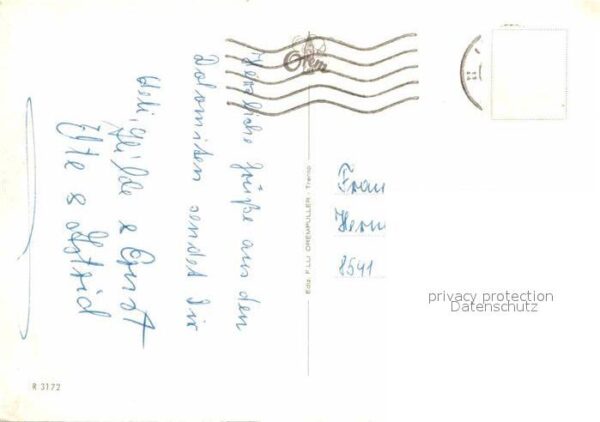 Herzliche Grüße aus den
Dolomiten sendet Dir
Heli, Hilde & Ernst
& Astrid
Ediz. F.LLI DREMPULLER - Trento
Frau
Herrn
8541
privacy protection
Datenschutz
R 3172